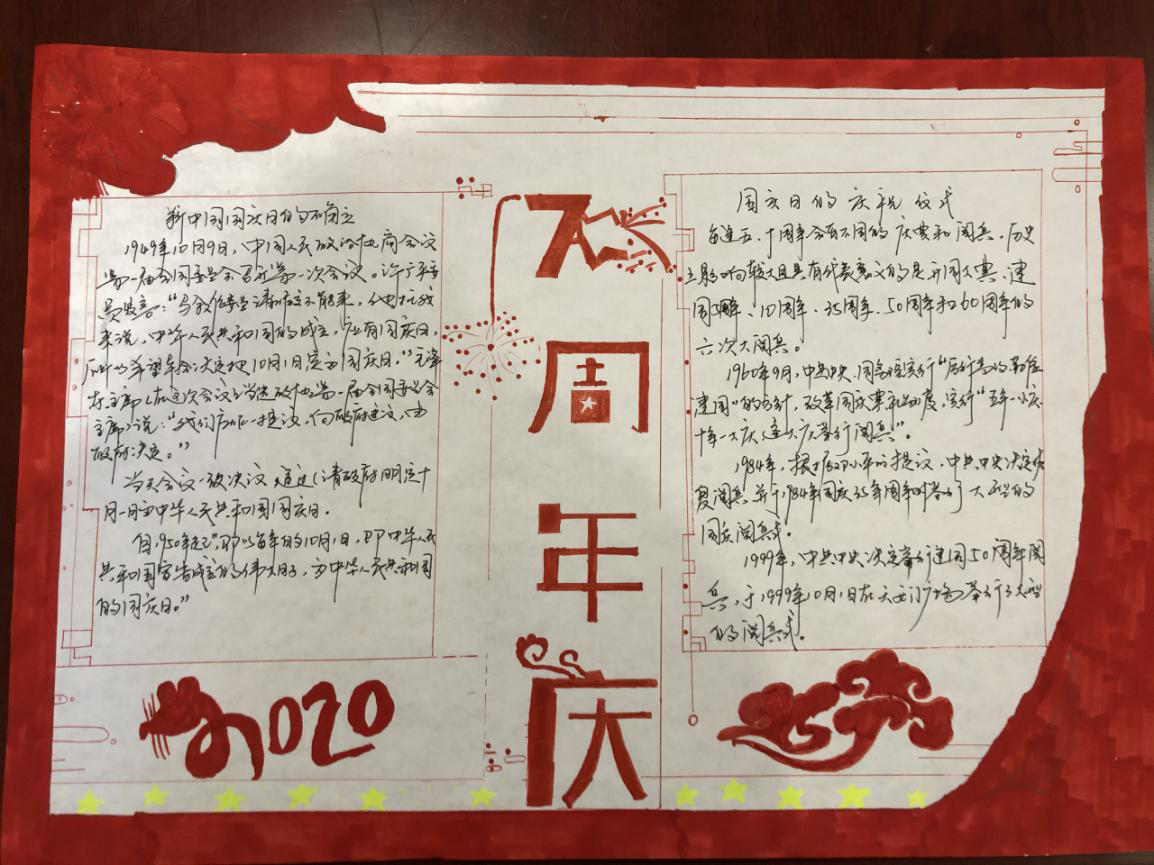 新中国国庆日的确立
1949年10月9日，中国人民政治协商会议
第一届全国委员会召开第一次会议。许广平委
员发言："马叙伦委员请假不能来，他托我
来说，中华人民共和国的成立，应有国庆日，
所以希望本会决定把10月1日定为国庆日。"毛泽
东主席（在这次会议上当选政协第一届全国委员会
主席）说："我们应作一提议，向政府建议，由
政府决定。"
当天会议一致决议 通过（请政府明定十
月一日为中华人民共和国国庆日。
自1950年起，即以每年的10月1日，即中华人民
共和国宣告成立的伟大日子，为中华人民共和国
的国庆日。"
2020
71周年庆
国庆日的庆祝仪式
每逢五、十周年会有不同的庆典和阅兵。历史
上影响较大且具有代表意义的是开国大典、建
国5周年、10周年、35周年、50周年和60周年的
六次大阅兵。
1960年9月，中共中央、国务院实行"厉行节约勤俭
建国"的方针，改革国庆典礼制度，实行"五年一小庆、
十年一大庆，逢大庆举行阅兵"。
1984年，根据邓小平的提议，中共中央决定恢
复阅兵，并于1984年国庆35年周年时举行了大型的
国庆阅兵式。
1999年，中共中央决定举行建国50周年阅
兵，于1999年10月1日在天安门广场举行了大型
的阅兵式。